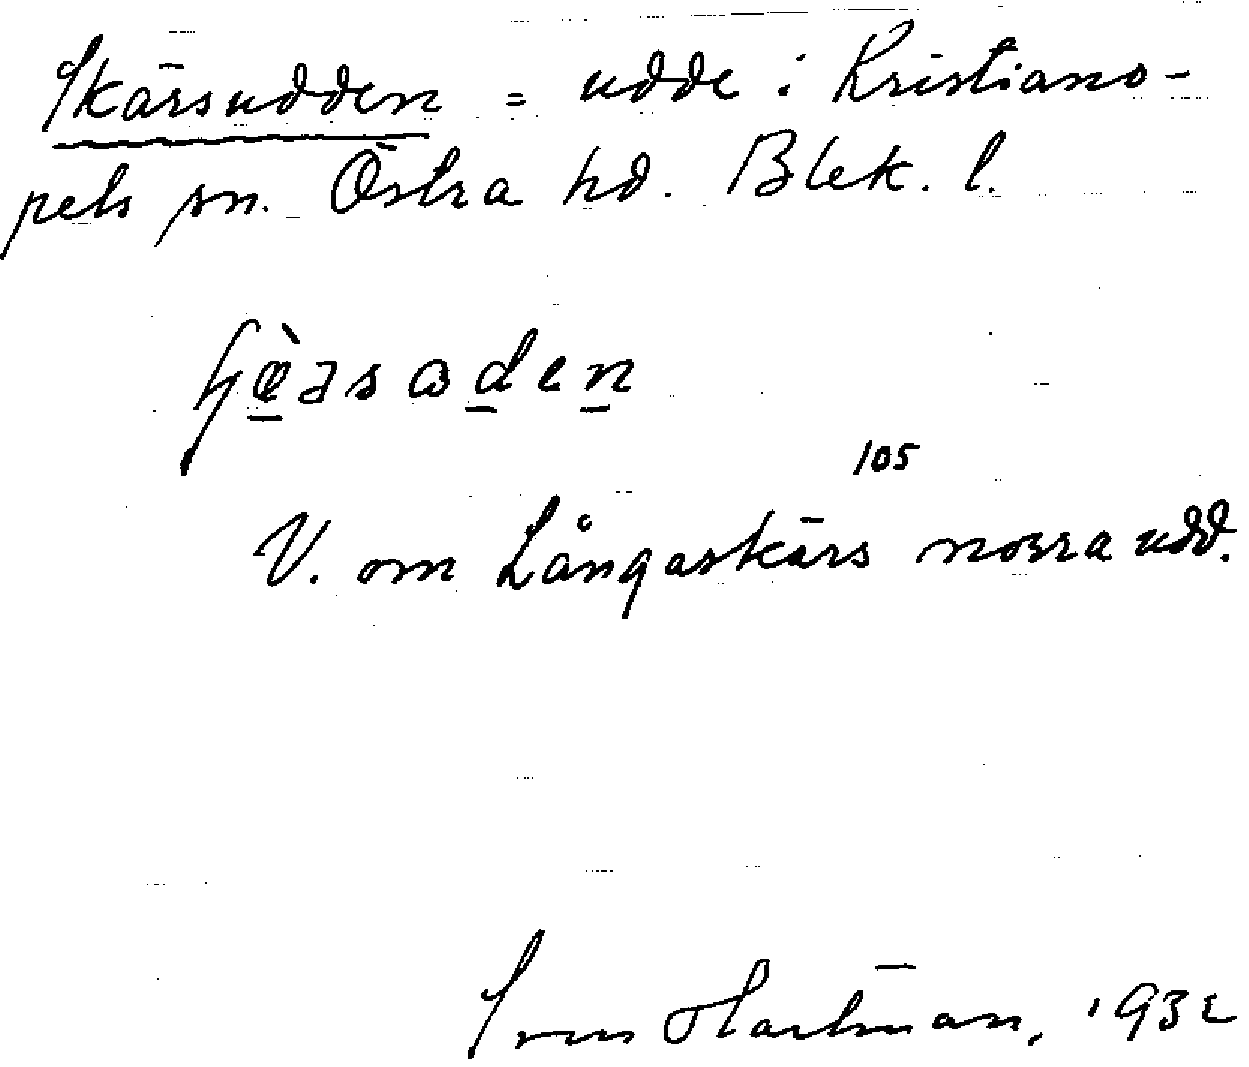 Skärsudden = udde i Kristiano-
pels sn. Östra hd. Blek. l.
105
V. om Långaskärs norra udd.
Sven Hartman, 1932